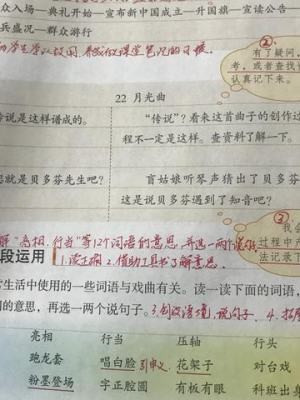 众入场—典礼开始—宣布新中国成立—升国旗—宣读公告—
兵盛况—群众游行
有了疑问,
考,或者查找
认真记下来。
22 月光曲
传说是这样谱成的。
“传说”?看来这首曲子的创作过
程不一定是这样。查资料了解一下。
您就是贝多芬先生吧?
盲姑娘听琴声猜出了贝多芬
这是说贝多芬遇到了知音吧?
我会
过程中
法记录下
解“亮相、行当”等12个词语的意思,并选一两个说句
段运用
1.读正确 2.借助工具书了解意思.
常生活中使用的一些词语与戏曲有关。读一读下面的词语,
们的意思,再选一两个说句子。
3.创设语境,说句子、4.拓展
亮相 行当 压轴 行头
跑龙套 唱白脸 引申义 花架子 对台戏
粉墨登场 字正腔圆 有板有眼 科班出身